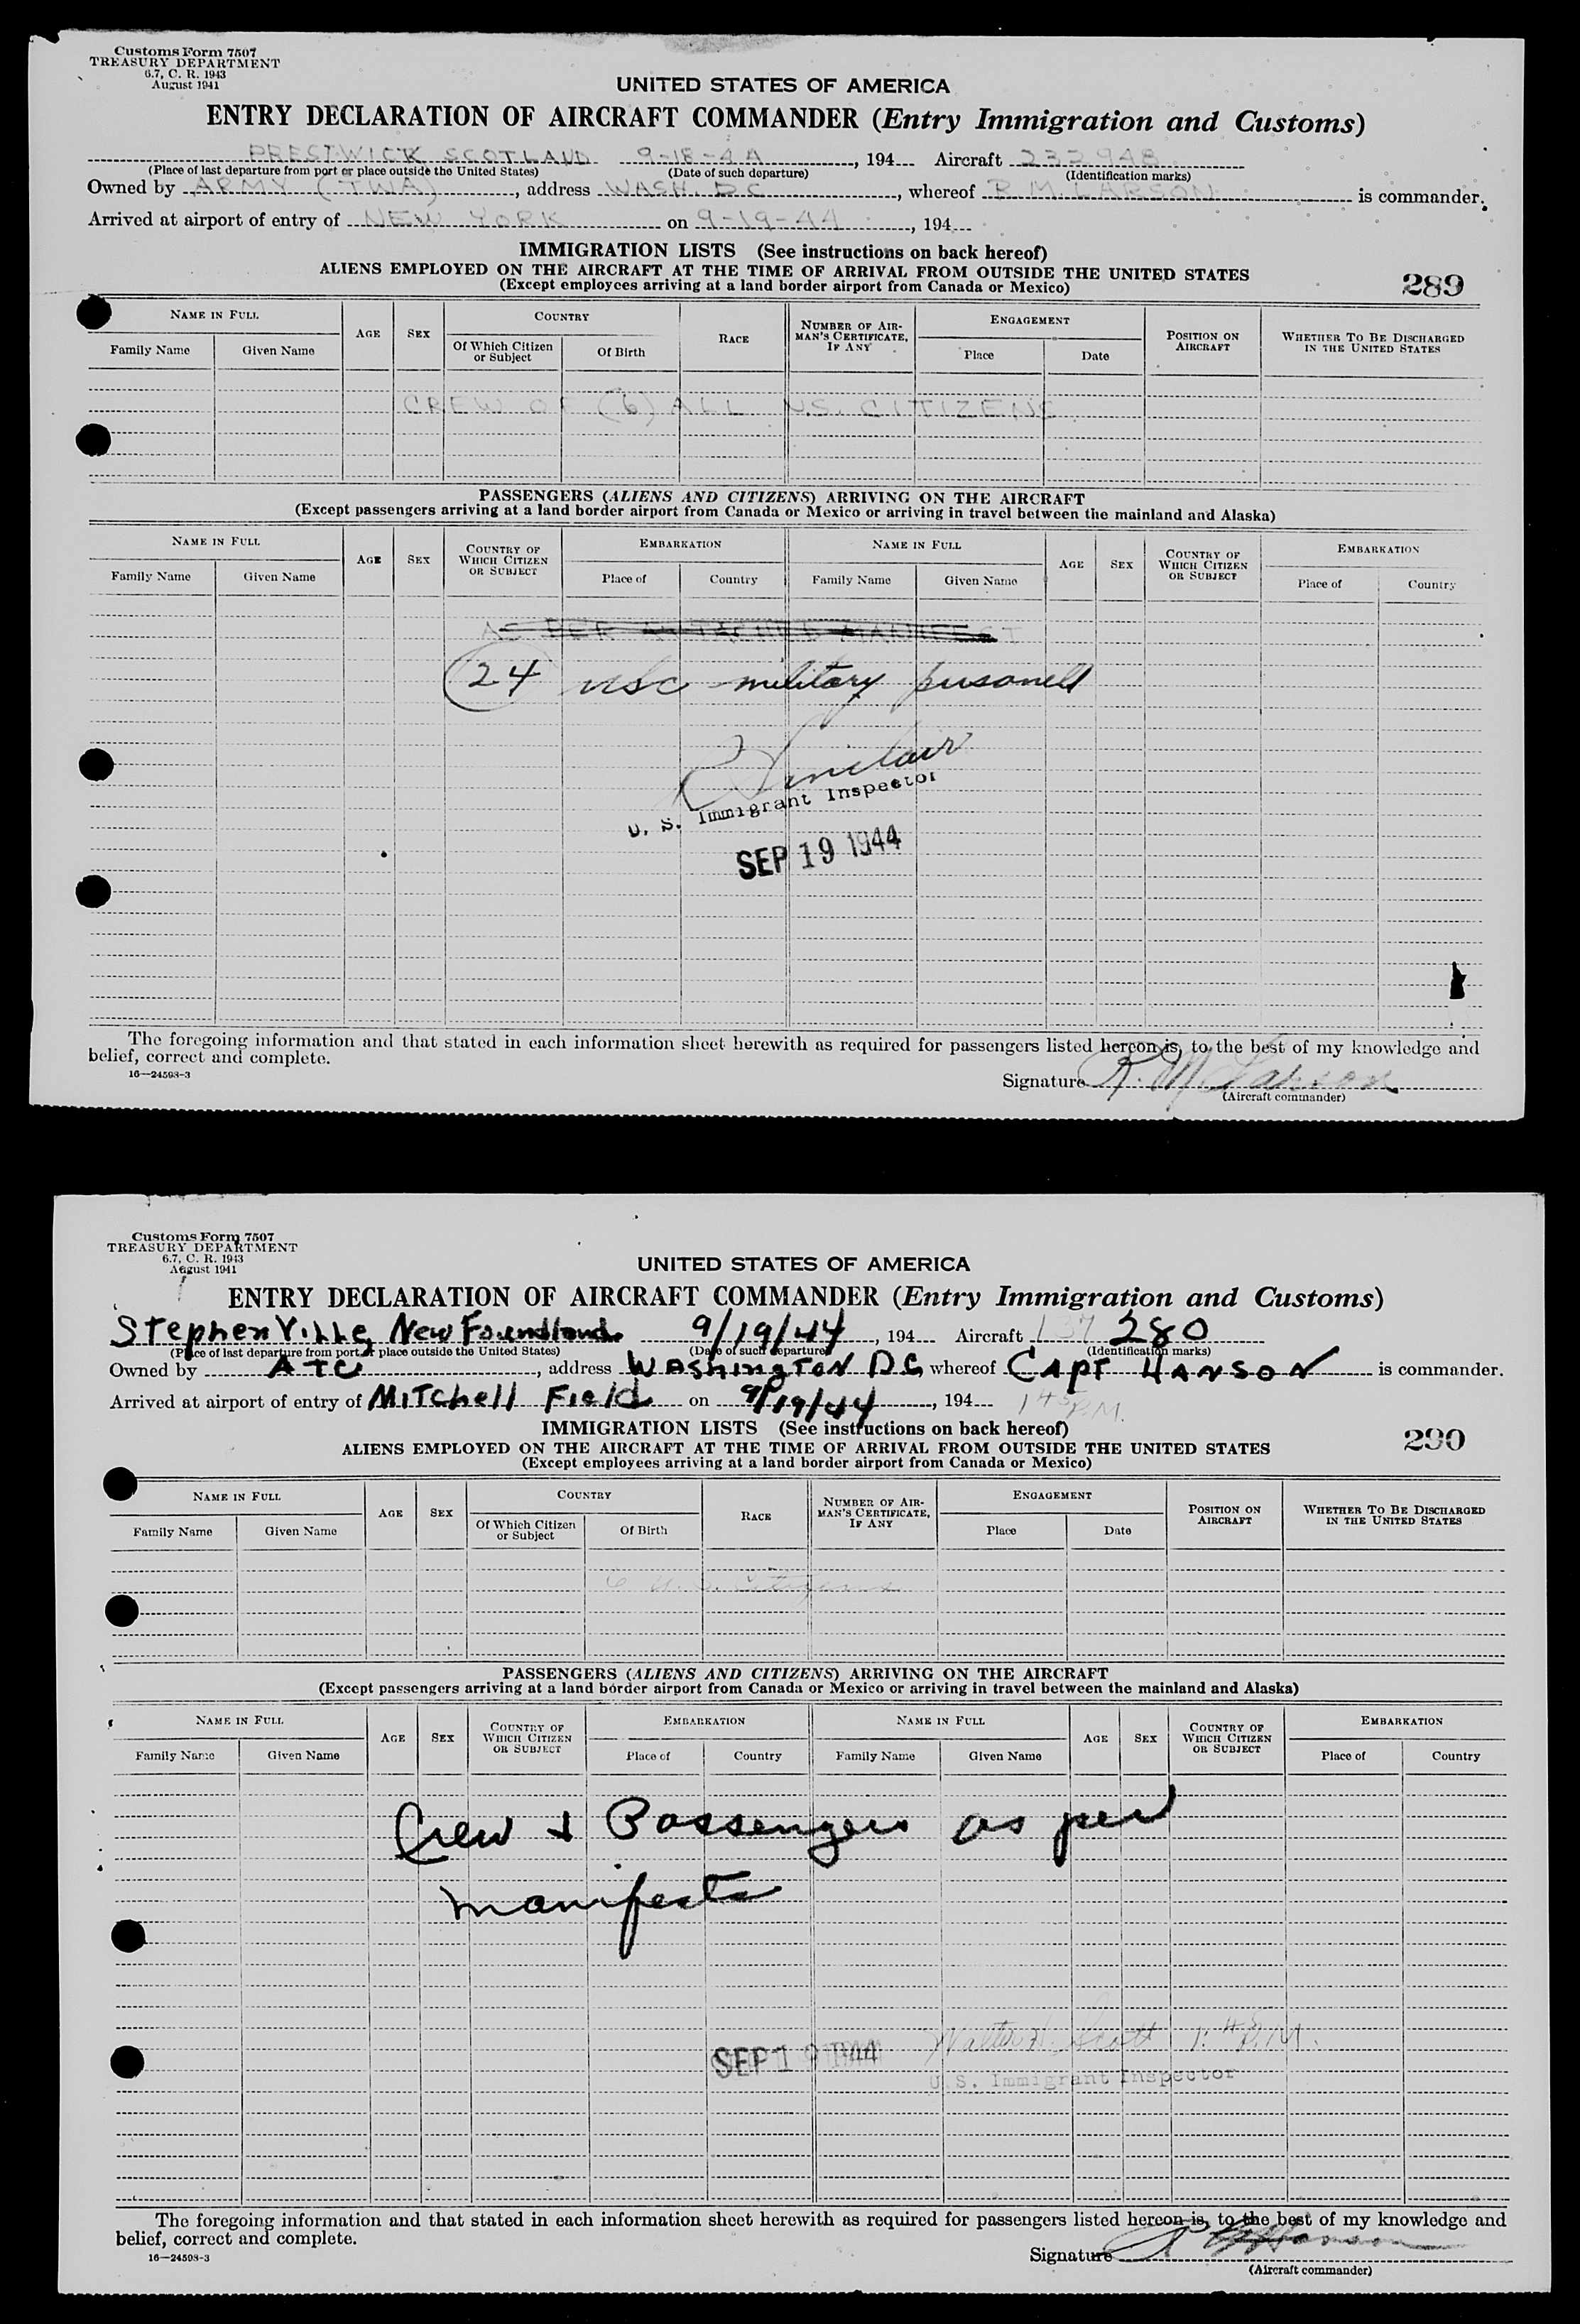 Customs Form 7507
TREASURY DEPARTMENT
6.7, C. R. 1943
August 1941
UNITED STATES OF AMERICA
ENTRY DECLARATION OF AIRCRAFT COMMANDER (Entry Immigration and Customs)
PRESTWICK SCOTLAND 9-18-44, 194 Aircraft 232948
(Place of last departure from port or place outside the United States) (Date of such departure) (Identification marks)
Owned by ARMY (TWA), address WASH. DC, whereof R M. LARSON is commander.
Arrived at airport of entry of NEW YORK on 9-19-44, 194
IMMIGRATION LISTS (See instructions on back hereof)
ALIENS EMPLOYED ON THE AIRCRAFT AT THE TIME OF ARRIVAL FROM OUTSIDE THE UNITED STATES
(Except employees arriving at a land border airport from Canada or Mexico)
289
NAME IN FULL AGE SEX COUNTRY RACE NUMBER OF AIRMAN'S CERTIFICATE, IF ANY ENGAGEMENT POSITION ON AIRCRAFT WHETHER TO BE DISCHARGED IN THE UNITED STATES
Family Name Given Name Of Which Citizen or Subject Of Birth Place Date
CREW OF (6) ALL U.S. CITIZENS
PASSENGERS (ALIENS AND CITIZENS) ARRIVING ON THE AIRCRAFT
(Except passengers arriving at a land border airport from Canada or Mexico or arriving in travel between the mainland and Alaska)
NAME IN FULL AGE SEX COUNTRY OF WHICH CITIZEN OR SUBJECT EMBARKATION NAME IN FULL AGE SEX COUNTRY OF WHICH CITIZEN OR SUBJECT EMBARKATION
Family Name Given Name Place of Country Family Name Given Name Place of Country
AS PER ATTACHED MANIFEST
24 USC military personell
Sinclair
U. S. Immigrant Inspector
SEP 19 1944
The foregoing information and that stated in each information sheet herewith as required for passengers listed hereon is, to the best of my knowledge and
belief, correct and complete.
16—24598-3
Signature R. M. Larson
(Aircraft commander)
Customs Form 7507
TREASURY DEPARTMENT
6.7, C. R. 1943
August 1941
UNITED STATES OF AMERICA
ENTRY DECLARATION OF AIRCRAFT COMMANDER (Entry Immigration and Customs)
StephenVille, NewFoundland 9/19/44, 194 Aircraft 137 280
(Place of last departure from port or place outside the United States) (Date of such departure) (Identification marks)
Owned by ATC, address Washington DC whereof Capt HANSON is commander.
Arrived at airport of entry of Mitchell Field on 9/19/44, 194 1 45 P.M.
IMMIGRATION LISTS (See instructions on back hereof)
ALIENS EMPLOYED ON THE AIRCRAFT AT THE TIME OF ARRIVAL FROM OUTSIDE THE UNITED STATES
(Except employees arriving at a land border airport from Canada or Mexico)
290
NAME IN FULL AGE SEX COUNTRY RACE NUMBER OF AIRMAN'S CERTIFICATE, IF ANY ENGAGEMENT POSITION ON AIRCRAFT WHETHER TO BE DISCHARGED IN THE UNITED STATES
Family Name Given Name Of Which Citizen or Subject Of Birth Place Date
6 U.S. Citizens
PASSENGERS (ALIENS AND CITIZENS) ARRIVING ON THE AIRCRAFT
(Except passengers arriving at a land border airport from Canada or Mexico or arriving in travel between the mainland and Alaska)
NAME IN FULL AGE SEX COUNTRY OF WHICH CITIZEN OR SUBJECT EMBARKATION NAME IN FULL AGE SEX COUNTRY OF WHICH CITIZEN OR SUBJECT EMBARKATION
Family Name Given Name Place of Country Family Name Given Name Place of Country
Crew & Passengers as per
manifests
Walter H. Scott 1:45 P.M.
SEP 19 1944
U.S. Immigrant Inspector
The foregoing information and that stated in each information sheet herewith as required for passengers listed hereon is, to the best of my knowledge and
belief, correct and complete.
16—24598-3
Signature Hanson
(Aircraft commander)